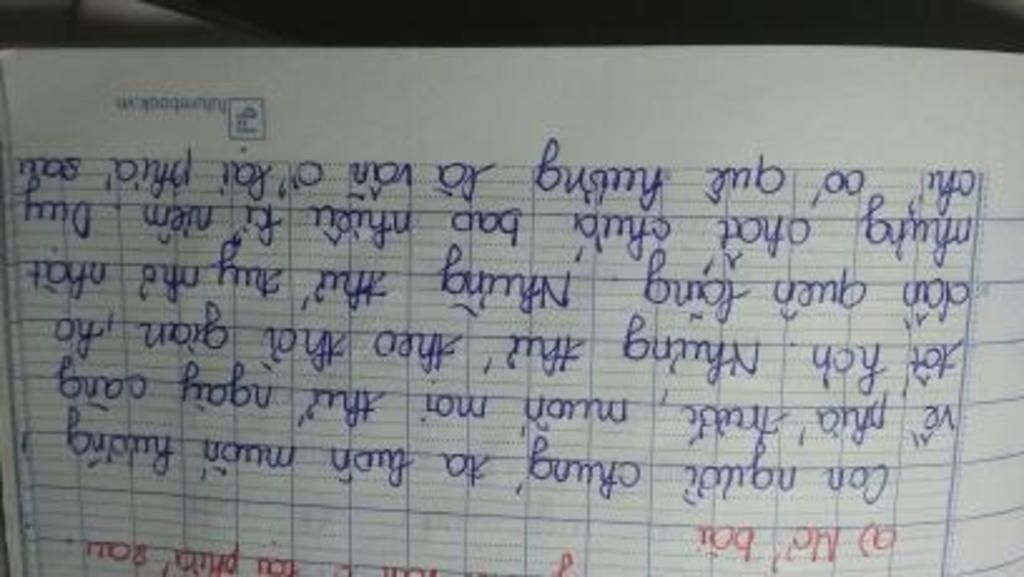 ở lại phía sau
a) Mở bài
Con người chúng ta luôn muốn hướng
về phía trước, muốn mọi thứ ngày càng
tốt hơn. Nhưng thứ theo thời gian, ta
dần quên lãng. Những thứ tuy nhỏ nhặt
nhưng chất chứa bao nhiêu kỉ niệm. Duy
chỉ có quê hương là vẫn ở lại phía sau.
futurebook.vn